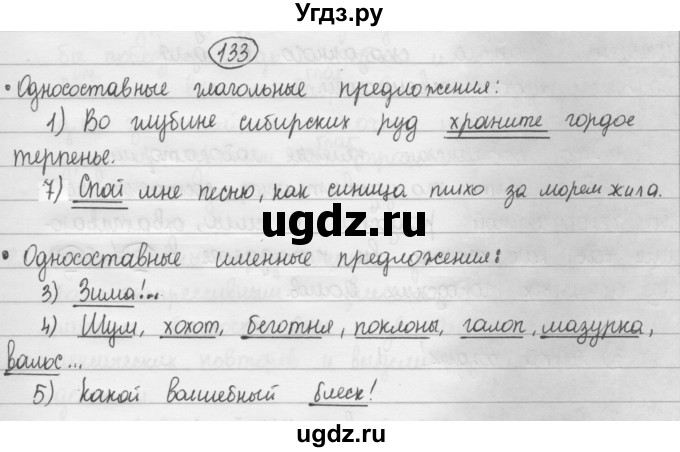 Угдз.ру
133
• Односоставные глагольные предложения:
1) Во глубине сибирских руд храните гордое
терпенье.
7) Спой мне песню, как синица тихо за морем жила.
ugdz.ru
• Односоставные именные предложения:
3) Зима!...
4) Шум, хохот, беготня, поклоны, галоп, мазурка,
вальс...
5) Какой волшебный блеск!
ugdz.ru